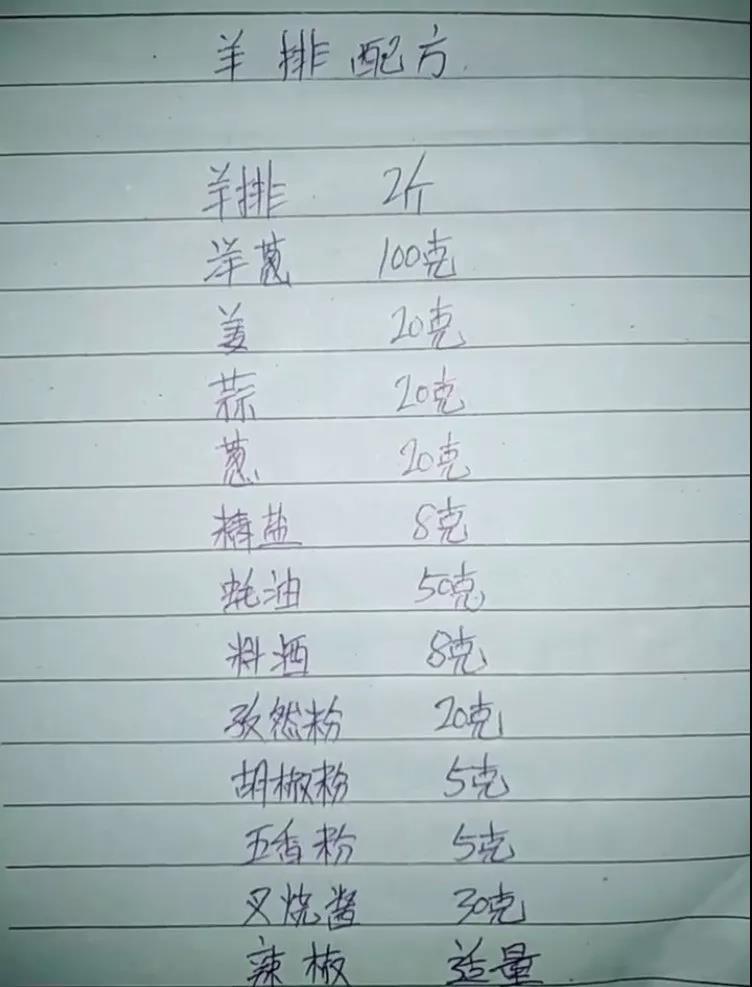 羊排配方
羊排 2斤
洋葱 100克
姜 20克
蒜 20克
葱 20克
椿盐 8克
蚝油 50克
料酒 8克
孜然粉 20克
胡椒粉 5克
五香粉 5克
叉烧酱 30克
辣椒 适量